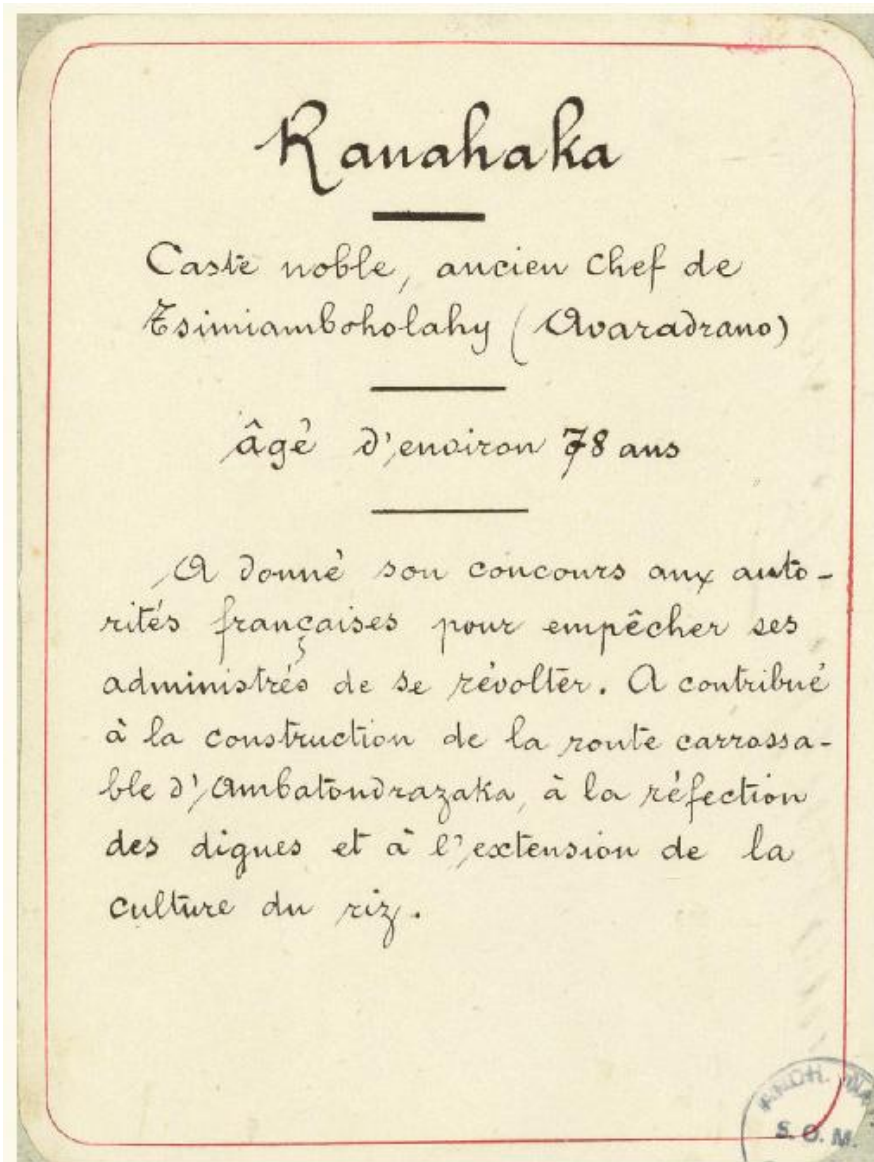 Ranahaka
Caste noble, ancien Chef de
Tsimiamboholahy (Avaradrano)
âgé d'environ 78 ans
A donné son concours aux auto-
rités françaises pour empêcher ses
administrés de se révolter. A contribué
à la construction de la route carrossa-
ble d'Ambatondrazaka, à la réfection
des digues et à l'extension de la
culture du riz.
S. O. M.